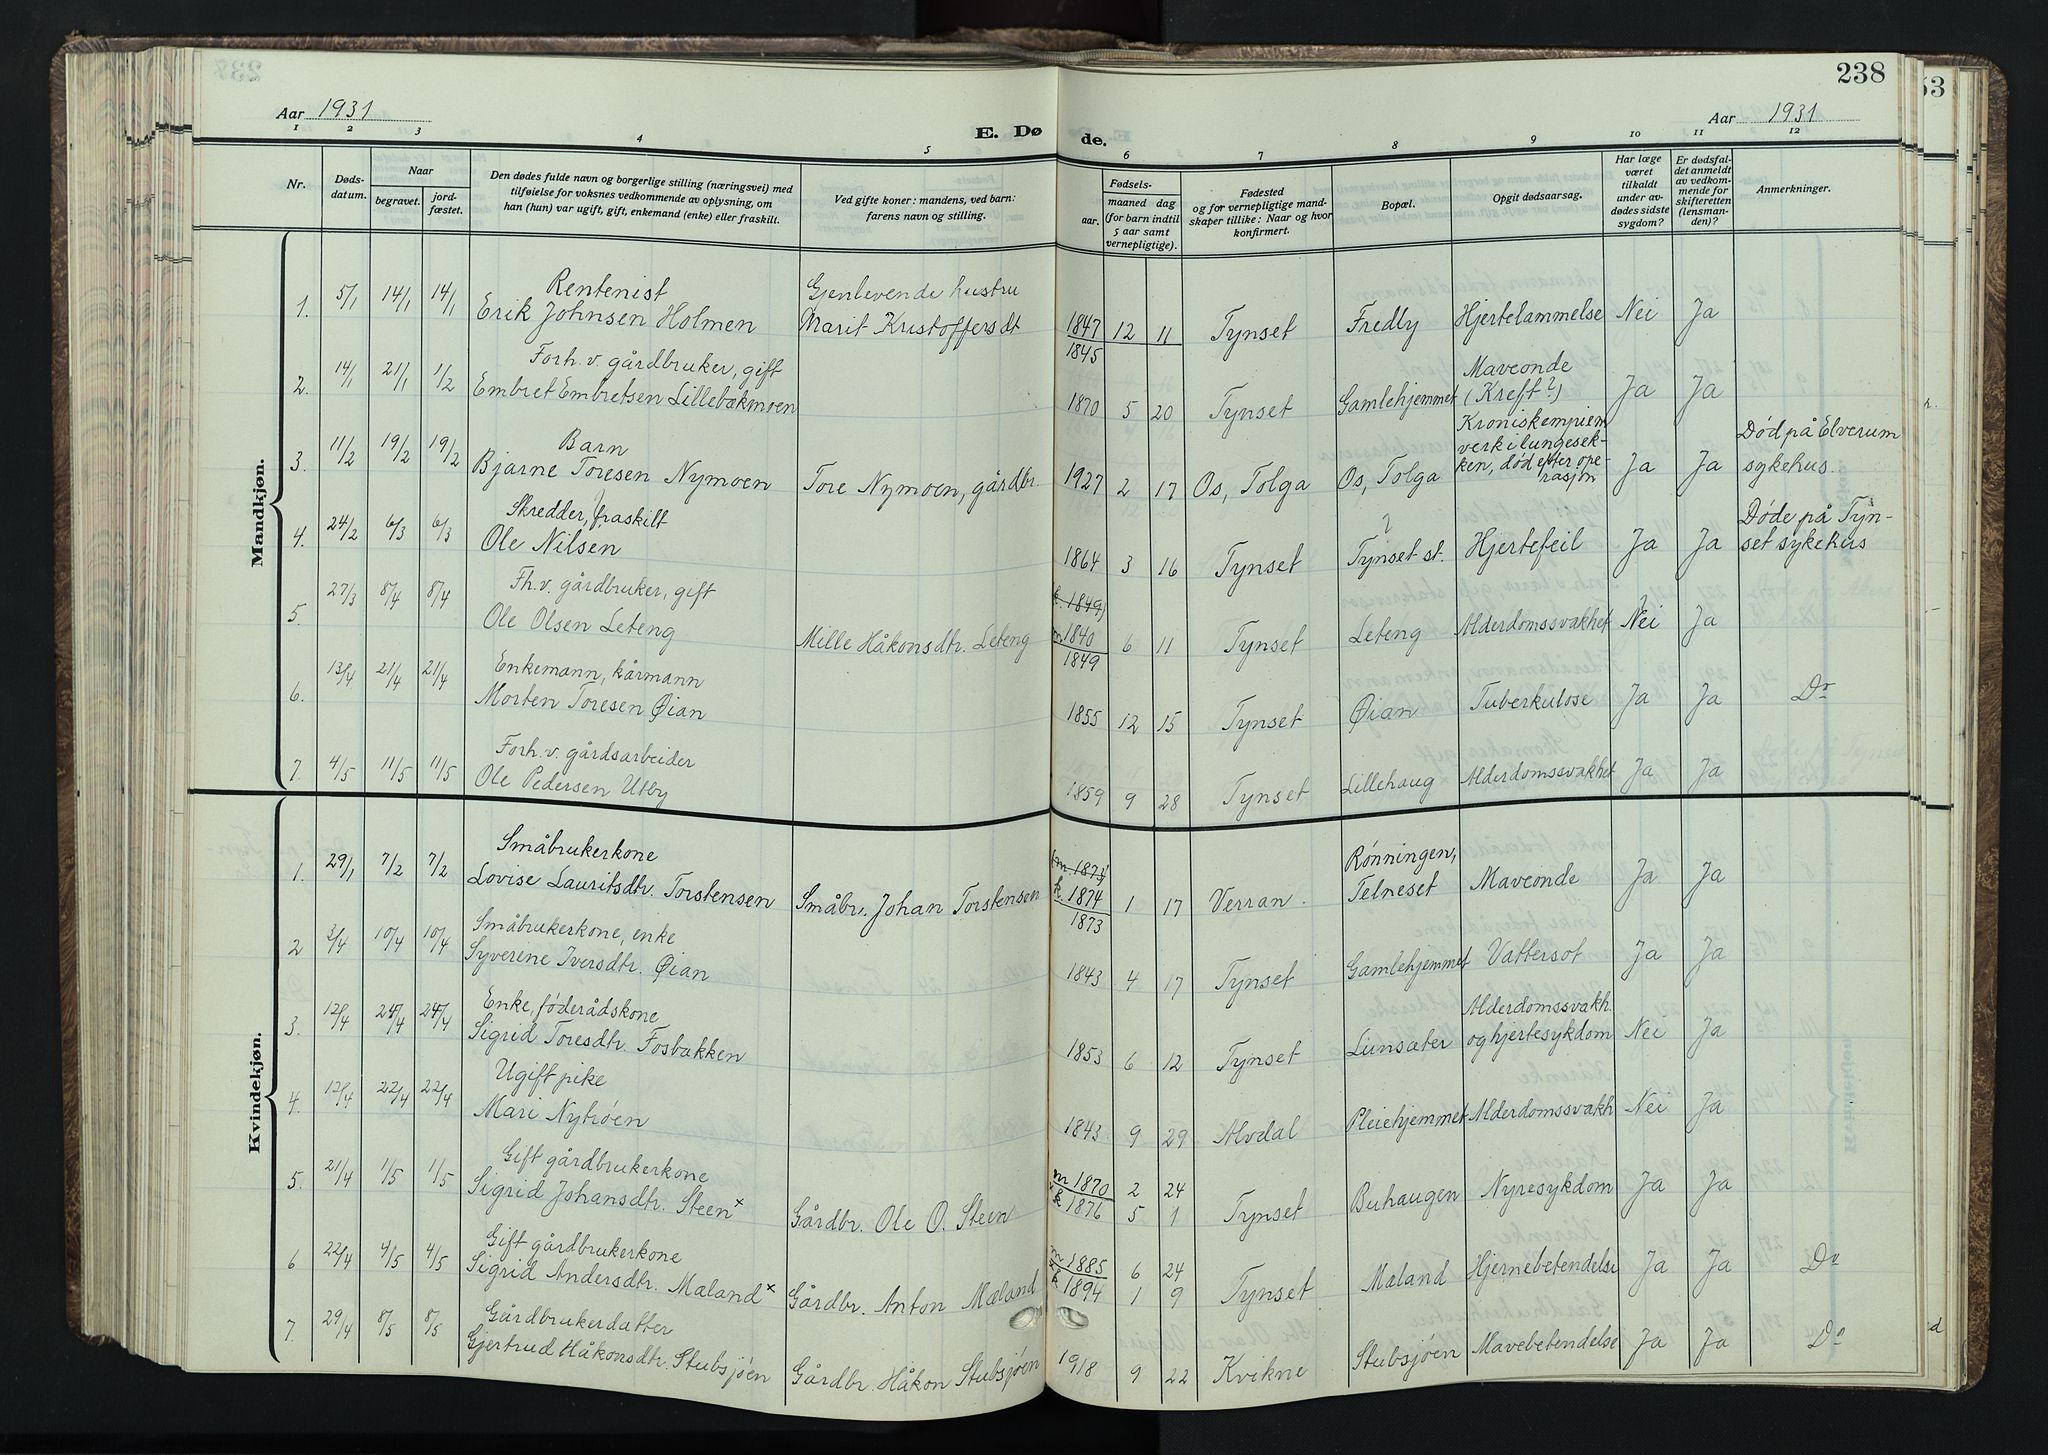 238
53
Aar 1931
E. Dø
de.
Aar 1931
1 2 3 4 5 6 7 8 9 10 11 12
Nr.
Dødsdatum.
Naar
begravet.
jordfæstet.
Den dødes fulde navn og borgerlige stilling (næringsvei) med
tilføielse for voksnes vedkommende av oplysning, om
han (hun) var ugift, gift, enkemand (enke) eller fraskilt.
Ved gifte koner: mandens, ved barn:
farens navn og stilling.
Fødselsaar. maaned dag
(for barn indtil
5 aar samt
vernepligtige).
Fødested
og for vernepligtige mandskaper tillike: Naar og hvor
konfirmert.
Bopæl.
Opgit dødsaarsag.
Har læge
været
tilkaldt
under avdødes sidste
sygdom?
Er dødsfaldet anmeldt
av vedkommende for
skifteretten
(lensmanden)?
Anmerkninger.
Mandkjøn.
Rentenist Gjenlevende hustru
1. 5/1 14/1 14/1 Erik Johnsen Holmen Marit Kristoffersdt 1847 12 11 Tynset Fredly Hjertelammelse Nei Ja
1845
Forh. v. gårdbruker, gift Maveonde
2. 14/1 21/1 1/2 Embret Embretsen Lillebækmoen 1870 5 20 Tynset Gamlehjemmet (Kreft?) Ja Ja
Barn Kronisk empiem Død på Elverum
3. 11/2 19/2 19/2 Bjarne Toresen Nymoen Tore Nymoen, gårdbr. 1927 2 17 Os, Tolga Os, Tolga verk i lungesekken, død efter operasjon Ja Ja sykehus.
Skredder, fraskilt ? ? Døde på Tyn-
4. 24/2 6/3 6/3 Ole Nilsen 1864 3 16 Tynset Tynset st. Hjertefeil Ja Ja set sykehus
Fh. v. gårdbruker, gift k. 1849
5. 27/3 8/4 8/4 Ole Olsen Leteng Mille Håkonsdtr. Leteng m 1840 6 11 Tynset Leteng Alderdomssvakhet Nei Ja
1849
Enkemann, kårmann
6. 13/4 21/4 21/4 Morten Toresen Øian 1855 12 15 Tynset Øian Tuberkulose Ja Ja Do
Forh. v. gårdsarbeider
7. 4/5 11/5 11/5 Ole Pedersen Utby 1859 9 28 Tynset Lillehaug Alderdomssvakhet Ja Ja
Kvindekjøn.
Småbrukerkone m 1871 Rønningen,
1. 29/1 7/2 7/2 Lovise Lauritsdtr. Torstensen Småbr. Johan Torstensen k. 1874 1 17 Verran. Telneset Maveonde Ja Ja
1873
Småbrukerkone, enke
2 3/4 10/4 10/4 Syverine Iversdtr. Øian 1843 4 17 Tynset Gamlehjemmet Vattersot Ja Ja
Enke, føderådskone Alderdomssvakh.
3. 12/4 24/4 24/4 Sigrid Toresdtr. Fosbakken 1853 6 12 Tynset Lunsæter og hjertesykdom Nei Ja
Ugift pike
4. 12/4 22/4 22/4 Mari Nytrøen 1843 9 29 Alvdal Pleiehjemmet Alderdomssvakh Nei Ja
Gift gårdbrukerkone m 1870 2 24
5. 21/4 1/5 1/5 Sigrid Johansdtr. Steen x Gårdbr. Ole O. Steen x k 1876 5 1 Tynset Buhaugen Nyresykdom Ja Ja
Gift gårdbrukerkone m 1885 6 24
6 22/4 4/5 4/5 Sigrid Andersdtr. Mæland x Gårdbr. Anton Mæland x k 1894 1 9 Tynset Mæland Hjernebetendelse Ja Ja Do
Gårdbrukerdatter
7. 29/4 8/5 8/5 Gjertrud Håkonsdtr. Stubsjøen Gårdbr. Håkon Stubsjøen 1918 9 22 Kvikne Stubsjøen Mavebetendelse Ja Ja Do